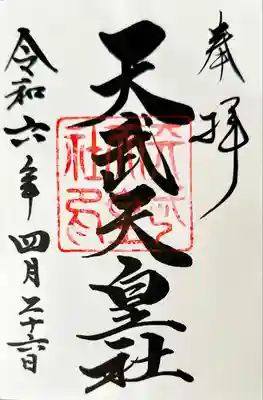 奉拝
天武天皇社
令和六年四月二十六日